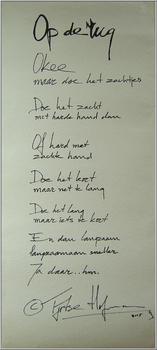 Op de rug
Okee
maar doe het zachtjes
Doe het zacht
met harde hand dan
Of hard met
zachte hand
Doe het kort
maar net te lang
Doe het lang
maar iets te kort
En dan langzaam
langzaamaan sneller
Ja daar...hm.
©